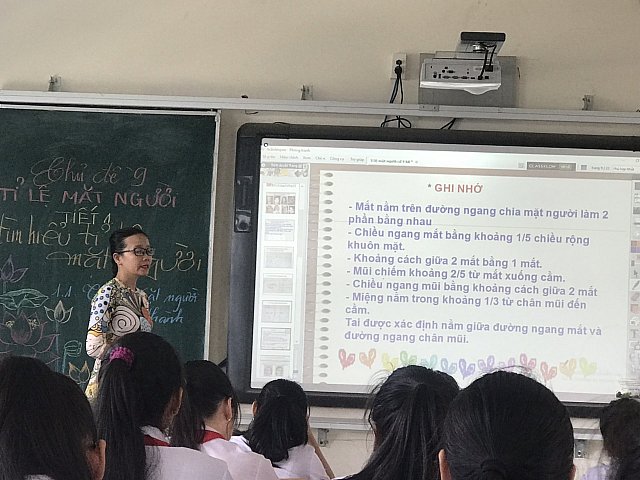 Chủ đề 9
TỈ LỆ MẶT NGƯỜI
TIẾT 1
Tìm hiểu tỉ
mặt người
1.1
mặt người
thành
CLASSFLOW
* GHI NHỚ
- Mắt nằm trên đường ngang chia mặt người làm 2
phần bằng nhau
- Chiều ngang mắt bằng khoảng 1/5 chiều rộng
khuôn mặt.
- Khoảng cách giữa 2 mắt bằng 1 mắt.
- Mũi chiếm khoảng 2/5 từ mắt xuống cằm.
- Chiều ngang mũi bằng khoảng cách giữa 2 mắt
- Miệng nằm trong khoảng 1/3 từ chân mũi đến
cằm.
Tai được xác định nằm giữa đường ngang mắt và
đường ngang chân mũi.